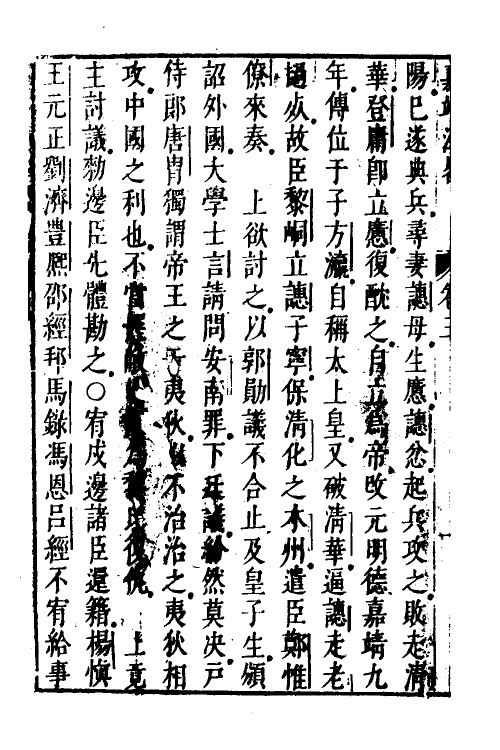 陽巳遂典兵尋妻譓母生應譓忿起兵攻之敗走清
華登庸卽立應復酖之自立爲帝改元明德嘉靖九
年傳位于子方瀛自稱太上皇又破清華逼譓走老
撾死故臣黎峒立譓子寧保清化之木州遣臣鄭惟
僚來奏　上欲討之以郭勛議不合止及皇子生頒
詔外國大學士言請問安南罪下廷議紛然莫决戸
侍郎唐胄獨謂帝王之於夷狄以不治治之夷狄相
攻中國之利也不宜　上竟
主討議勑邊臣先體勘之○宥戍邊諸臣還籍楊慎
王元正劉濟豊熈邵經邦馬錄馮恩呂經不宥給事